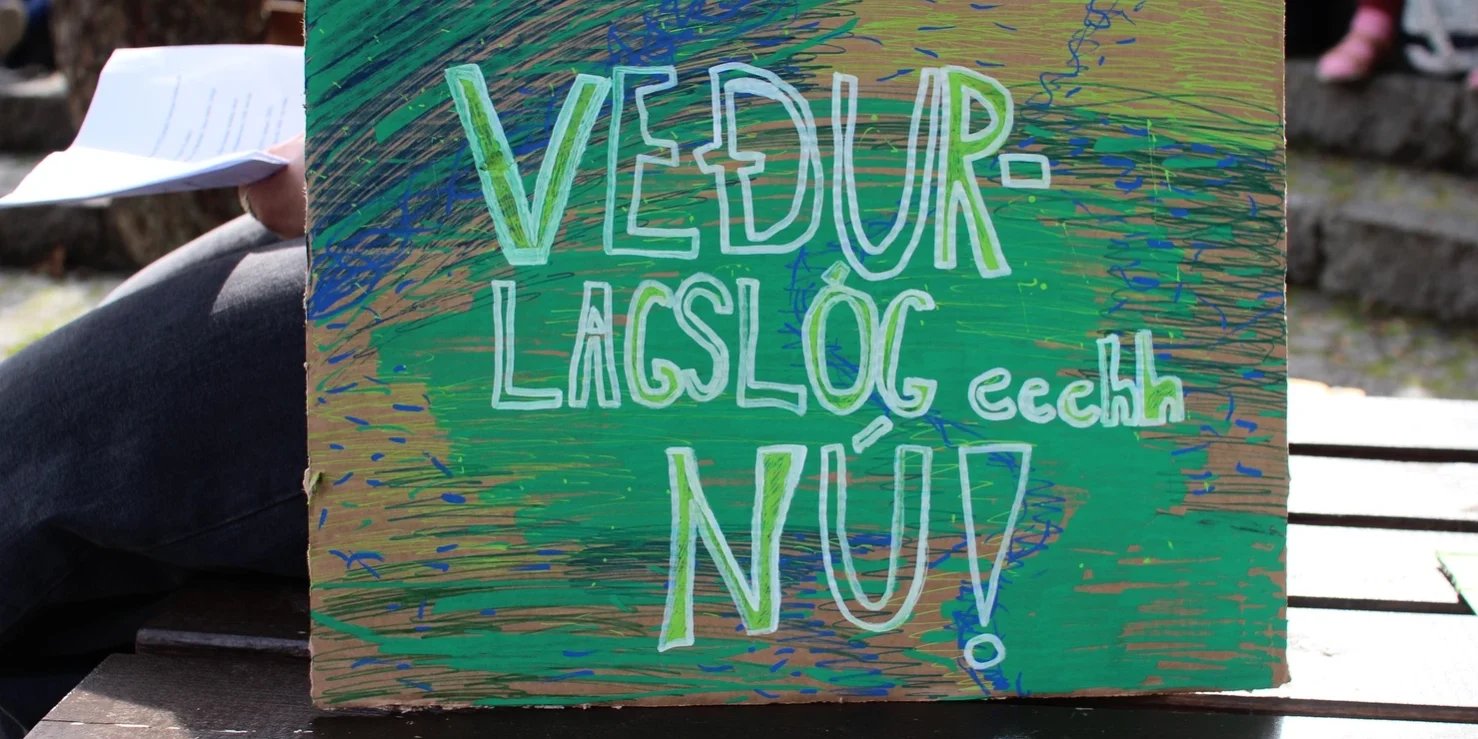 VEÐUR-
LAGSLÓG eeehh
NÚ!